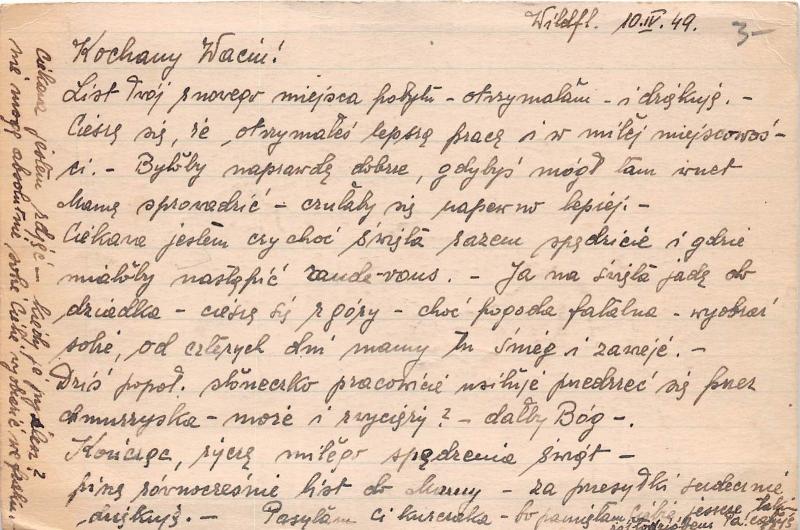 Wildfl. 10.IV.49.
3-
Kochany Waciu!
List Twój z nowego miejsca pobytu - otrzymałam - i dziękuję. -
Cieszę się, że otrzymałeś lepszą pracę i w miłej miejscowoś-
ci. - Byłoby naprawdę dobrze, gdybyś mógł tam wnet
Mamę sprowadzić - czułaby się napewno lepiej. -
Ciekawa jestem czy choć święta razem spędzicie i gdzie
miałoby nastąpić rande-vous. - Ja na święta jadę do
dziadka - cieszę się z góry - choć pogoda fatalna - wyobraź
sobie, od czterech dni mamy tu śnieg i zawieje. -
Dziś popoł. słoneczko pracowicie usiłuje przedrzeć się przez
chmurzyska - może i zwycięży? - dałby Bóg -.
Kończąc, życzę miłego spędzenia świąt -
piszę równocześnie list do Mamy - za przesyłki serdecznie
dziękuję. - Posyłam ci kurczaka - bo pamiętam
Ciekawa jestem zdjęć - kiedy je przyślesz?
nie mogę absolutnie sobie Ciebie wyobrazić